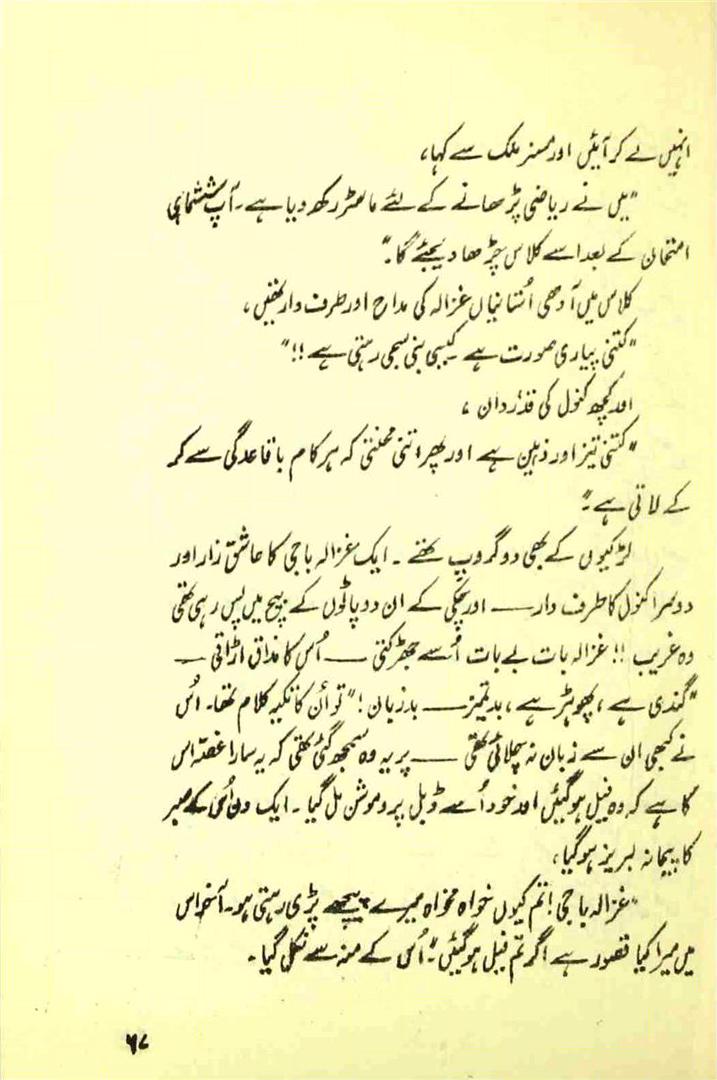 انہیں لے کر آئیں اور مسز ملک سے کہا،
"میں نے ریاضی پڑھانے کے لئے ماسٹر رکھ دیا ہے۔ آپ ششماہی
امتحان کے بعد اسے کلاس چڑھا دیجئے گا۔"
کلاس میں آدھی اُستانیاں غزالہ کی مداح اور طرف دار تھیں،
"کتنی پیاری صورت ہے کیسی بنی سجی رہتی ہے!!"
اور کچھ کنول کی قدردان،
"کتنی تیز اور ذہین ہے اور پھر اتنی محنتی کہ ہر کام باقاعدگی سے کر
کے لاتی ہے۔"
لڑکیوں کے بھی دو گروپ تھے۔ ایک غزالہ باجی کا عاشق زار اور
دوسرا کنول کا طرف دار — اور چکی کے ان دو پاٹوں کے بیچ میں پس رہی تھی
وہ غریب!! غزالہ بات بے بات اُسے جھڑکتی — اُس کا مذاق اڑاتی —
"گندی ہے، پھوہڑ ہے، بدتمیز — بدزبان!" تو اُن کا تکیہ کلام تھا۔ اُس
نے کبھی ان سے زبان نہ چلائی تھی — پر یہ وہ سمجھ گئی تھی کہ یہ سارا غصّہ اس
کا ہے کہ وہ فیل ہو گئیں اور خود اُسے ڈبل پروموشن مل گیا۔ ایک دن اُس کے صبر
کا پیمانہ لبریز ہو گیا،
"غزالہ باجی! تم کیوں خواہ مخواہ میرے پیچھے پڑی رہتی ہو۔ آخر اس
میں میرا کیا قصور ہے اگر تم فیل ہو گئیں" اُس کے منہ سے نکل گیا۔
۶۷